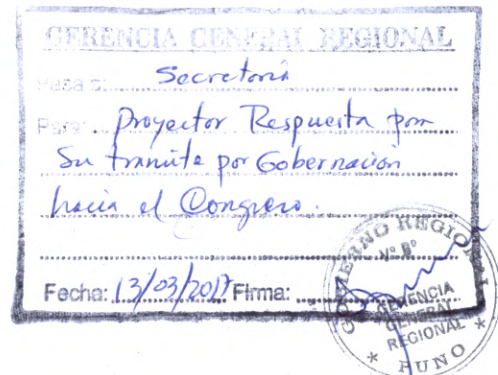 GERENCIA GENERAL REGIONAL
Pasa a: Secretoria
Para: Proyector Respuesta por
Su tramite por Gobernacion
hacia el Congreso.
Fecha: 13/03/2017 Firma:
GOBIERNO REGIONAL
V° B°
GERENCIA
GENERAL
REGIONAL
* PUNO *